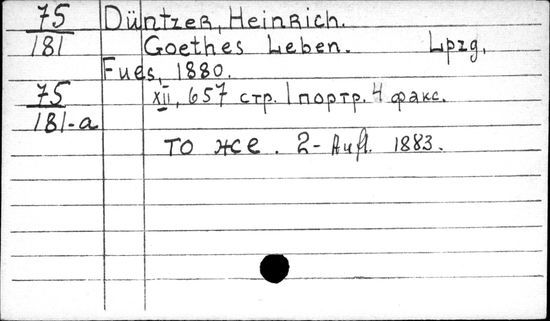 75 Düntzer, Heinrich.
181 Goethes Leben. Lpzg,
Fues, 1880.
75 XII, 657 стр. 1 портр. 4 факс.
181-a
то же. 2- Aufl. 1883.